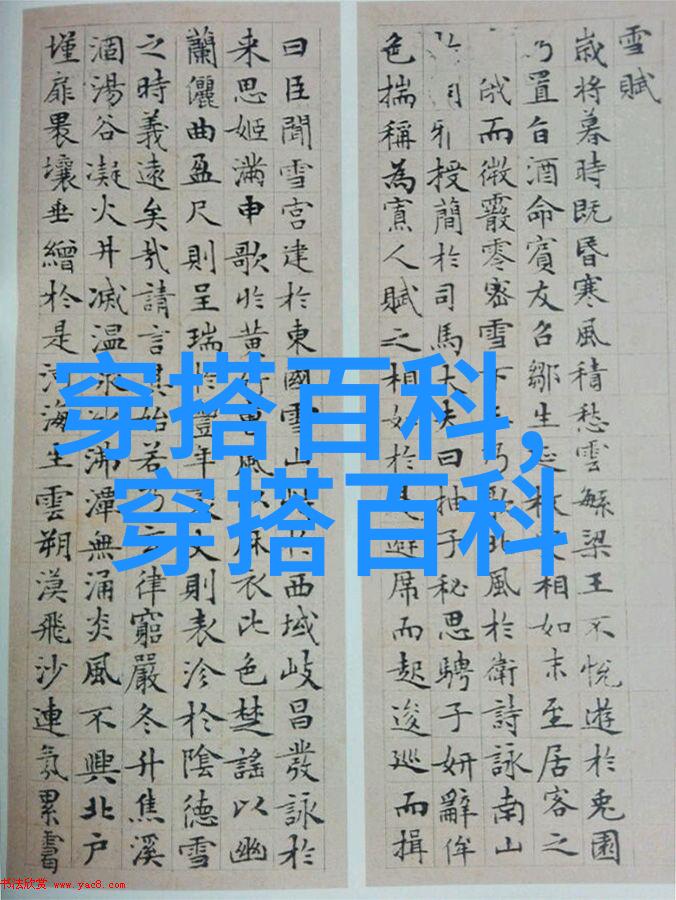 雪賦
歲將暮時既昏寒風積愁雲繁梁王不悅遊於兔園
乃置旨酒命賓友召鄒生延枚相如末至居客之
俄而微霰零密雪下乃歌北風於衛詩詠南山
授簡於司馬大夫曰抽子秘思騁子妍辭侔
色揣稱為寡人賦之相如於是避席而起逡巡而揖
曰臣聞雪宮建於東國雪山於西域岐昌發詠於
来思姬滿申歌於黃竹曹風以麻衣比色楚謠以幽
蘭儷曲盈尺則呈瑞於豐年袤丈則表沴於陰德雪
之時義遠矣哉請言其始若乃玄律窮嚴冬升焦溪
涸湯谷凝火井滅温泉冰沸潭無涌炎風不興北户
墐扉壤垂繒於是河海生雲朔漠飛沙連氛累靄
穿搭百科,
穿搭百科
书法欣赏 www.yac8.com